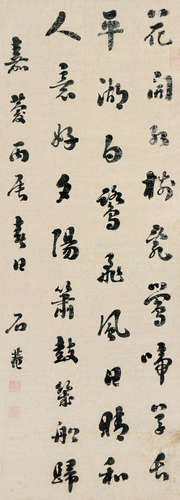 花開紅樹亂鶯啼草長
平湖白鷺飛風日晴和
人意好夕陽簫鼓幾船歸
嘉慶丙辰春日 石菴